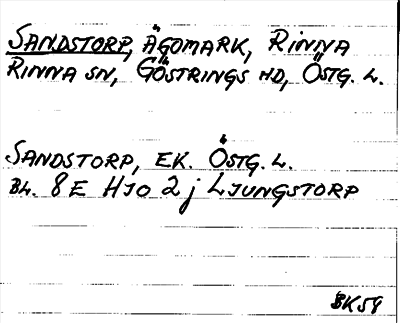 SANDSTORP, ÄGOMARK, RINNA
RINNA SN, GÖSTRINGS HD, ÖSTG. L.
SANDSTORP, EK. ÖSTG. L.
BL. 8E HJO 2j LJUNGSTORP
BK59